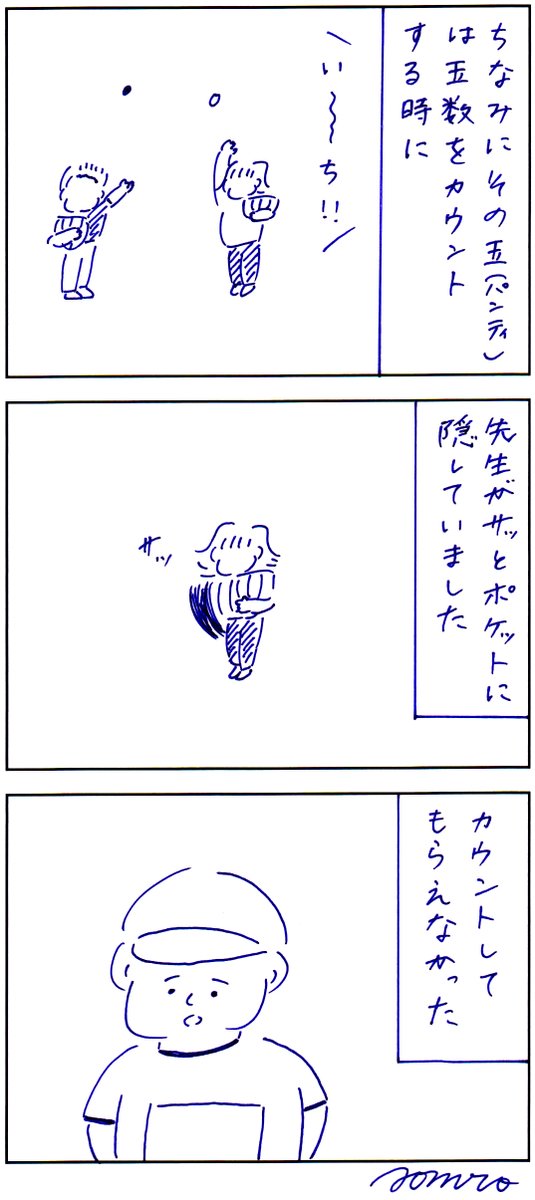 ちなみにその玉(パンティ)
は玉数をカウント
する時に
い〜〜ち!!
先生がサッとポケットに
隠していました
サッ
カウントして
もらえなかった